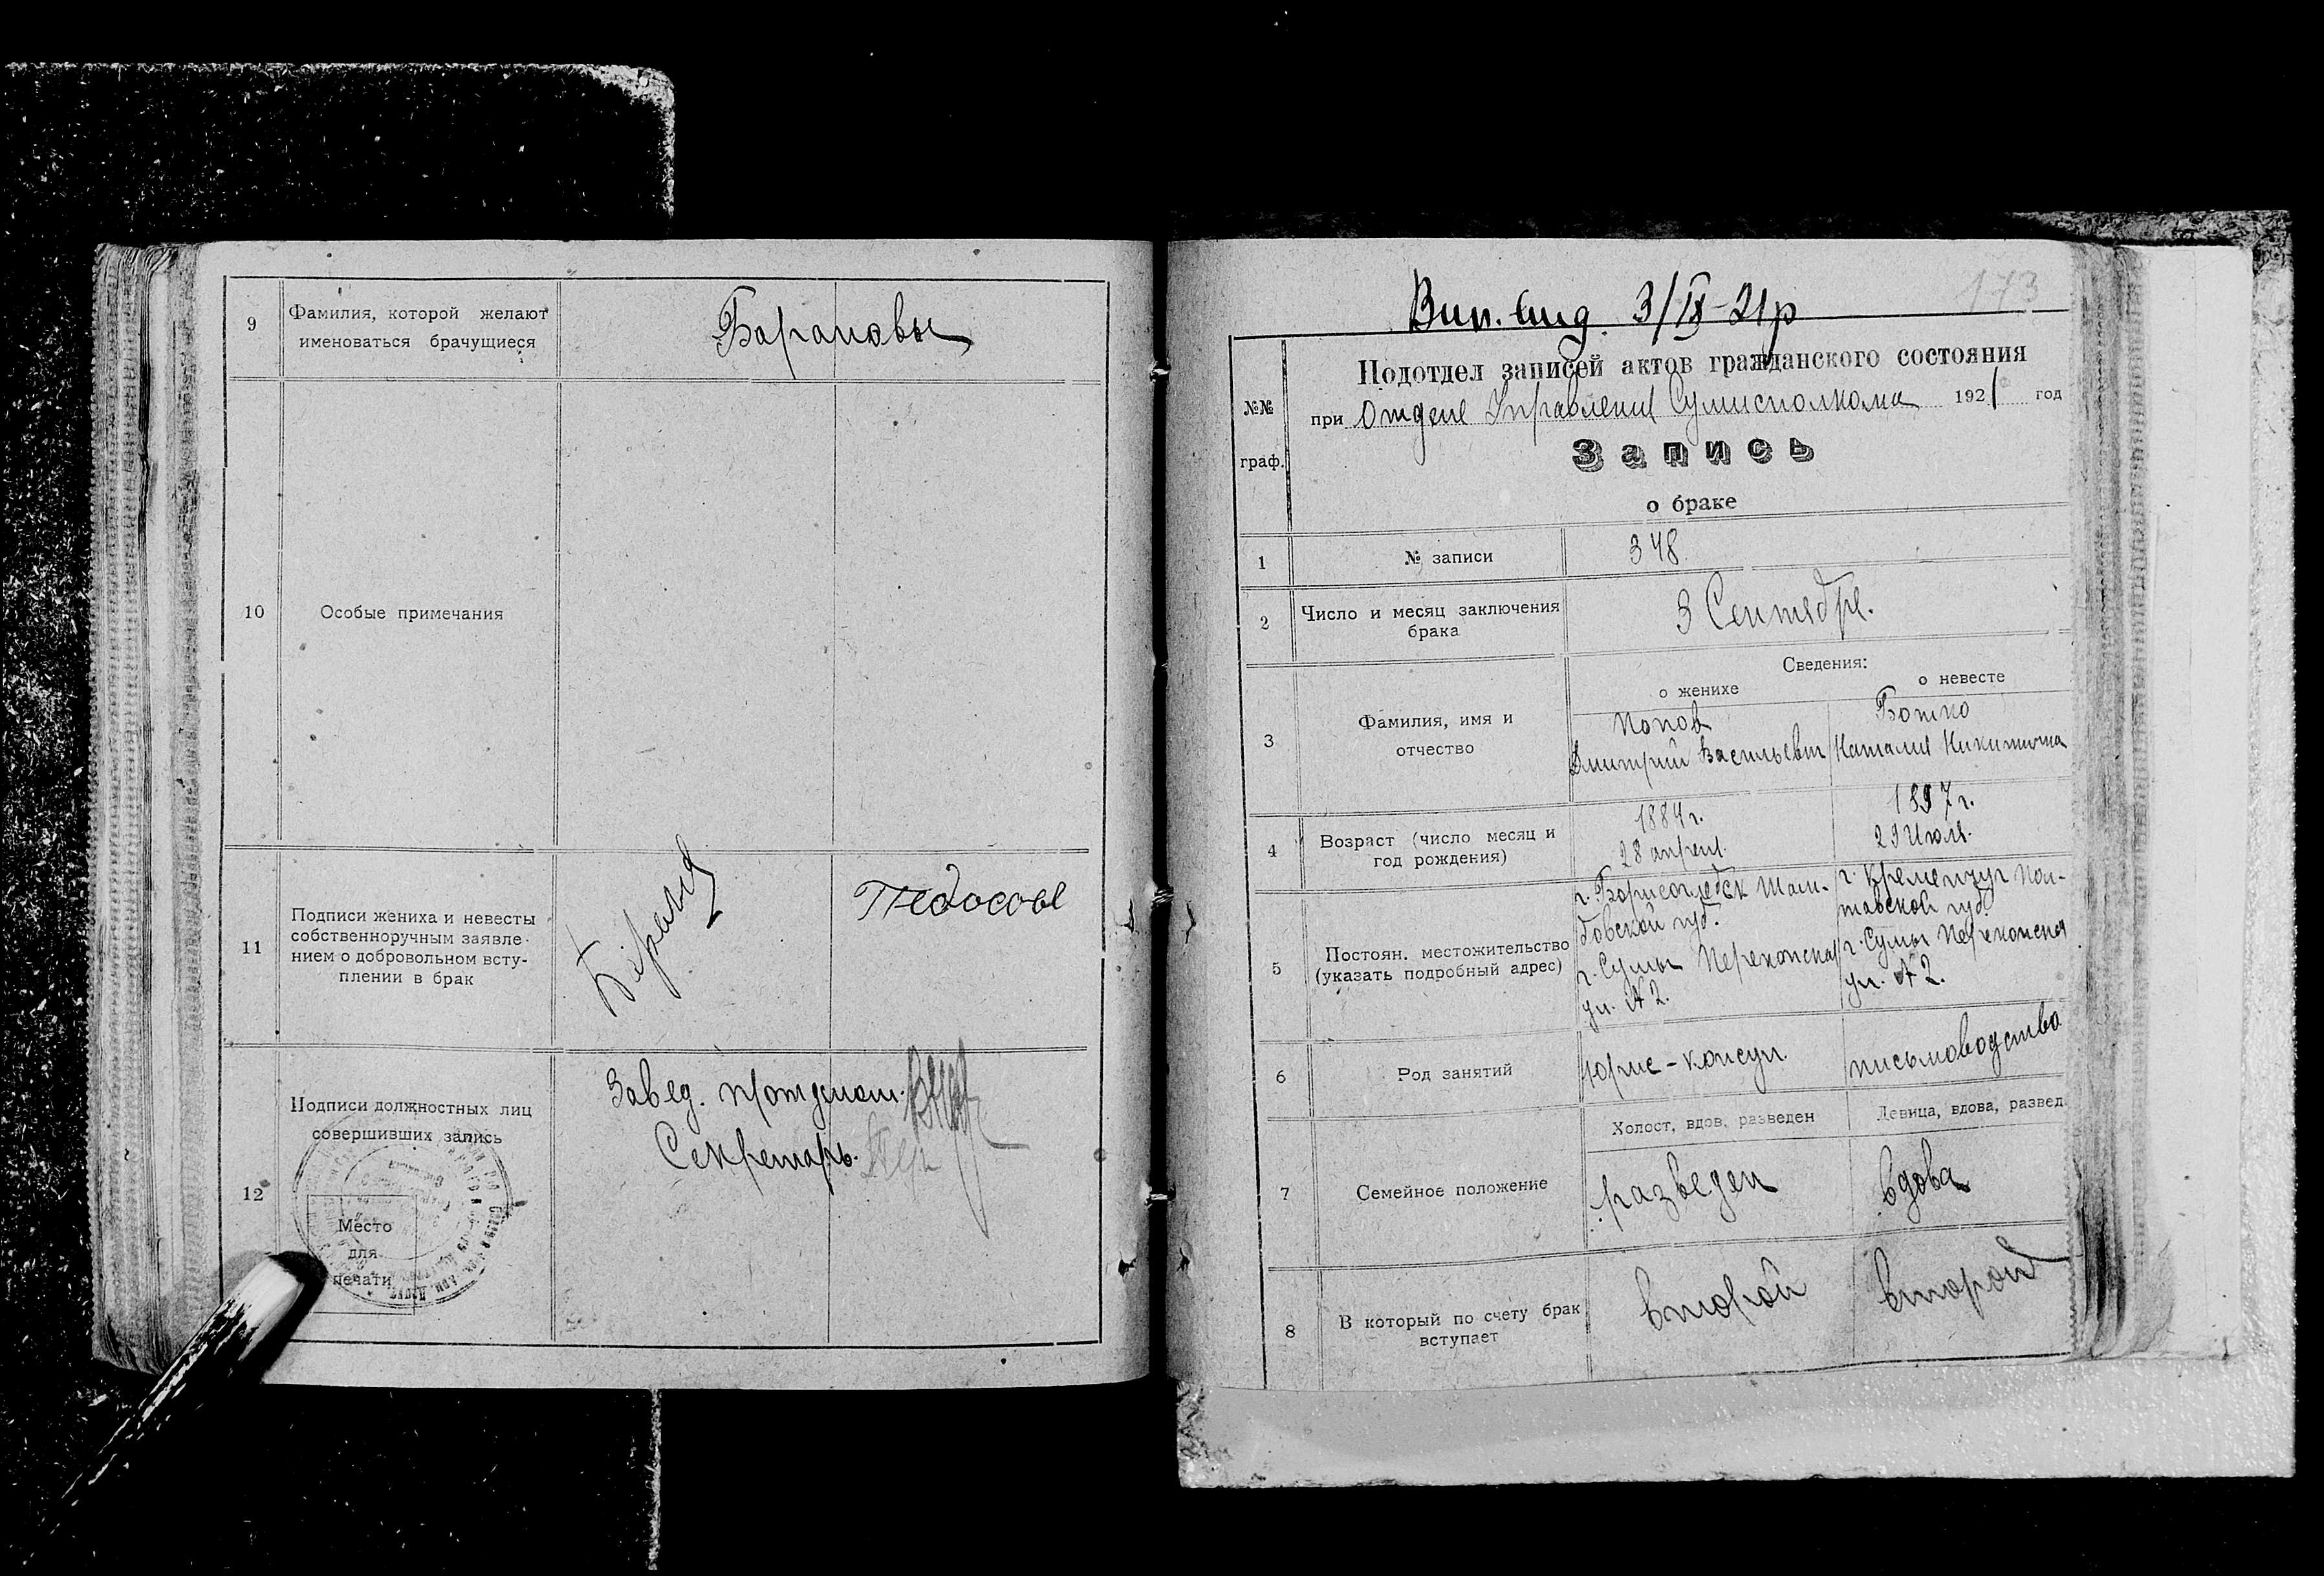 9
Фамилия, которой желают
именоваться брачущиеся
Барановы
10
Особые примечания
11
Подписи жениха и невесты
собственноручным заявле-
нием о добровольном всту-
плении в брак
12
Подписи должностных лиц
совершивших запись
Завед.
Секретарь.
Место
для
печати
173
Вип. 3/IX-21р
№№
граф.
Подотдел записей актов гражданского состояния
при Отделе Управления Сумисполкома 1921 год
Запись
о браке
1
№ записи
348.
2
Число и месяц заключения
брака
3 Сентября.
3
Фамилия, имя и
отчество
Сведения:
о женихе
о невесте
Попов
Дмитрий Васильевич
Ботко
Наталия Никитична
4
Возраст (число месяц и
год рождения)
1884 г.
28 апреля.
1897 г.
29 Июля.
5
Постоян. местожительство
(указать подробный адрес)
г. Борисоглебск Там-
бовской губ.
г. Сумы Перекопская
ул. № 2.
г. Кременчуг Пол-
тавской губ.
г. Сумы Перекопская
ул. № 2.
6
Род занятий
Юрис-консул.
письмоводство
7
Семейное положение
Холост, вдов, разведен
Девица, вдова, развед.
разведен
вдова
8
В который по счету брак
вступает
второй
второй